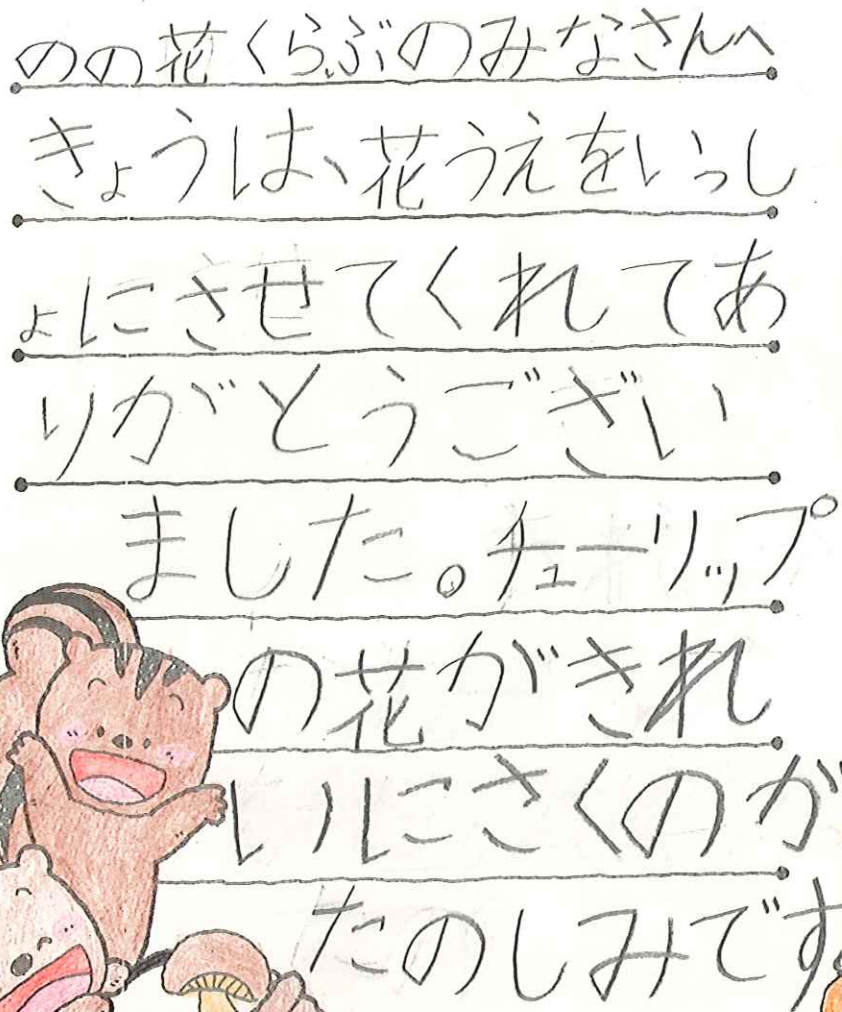 のの花くらぶのみなさんへ
きょうは、花うえをいっし
ょにさせてくれてあ
りがとうござい
ました。チューリップ
の花がきれ
いにさくのが
たのしみです